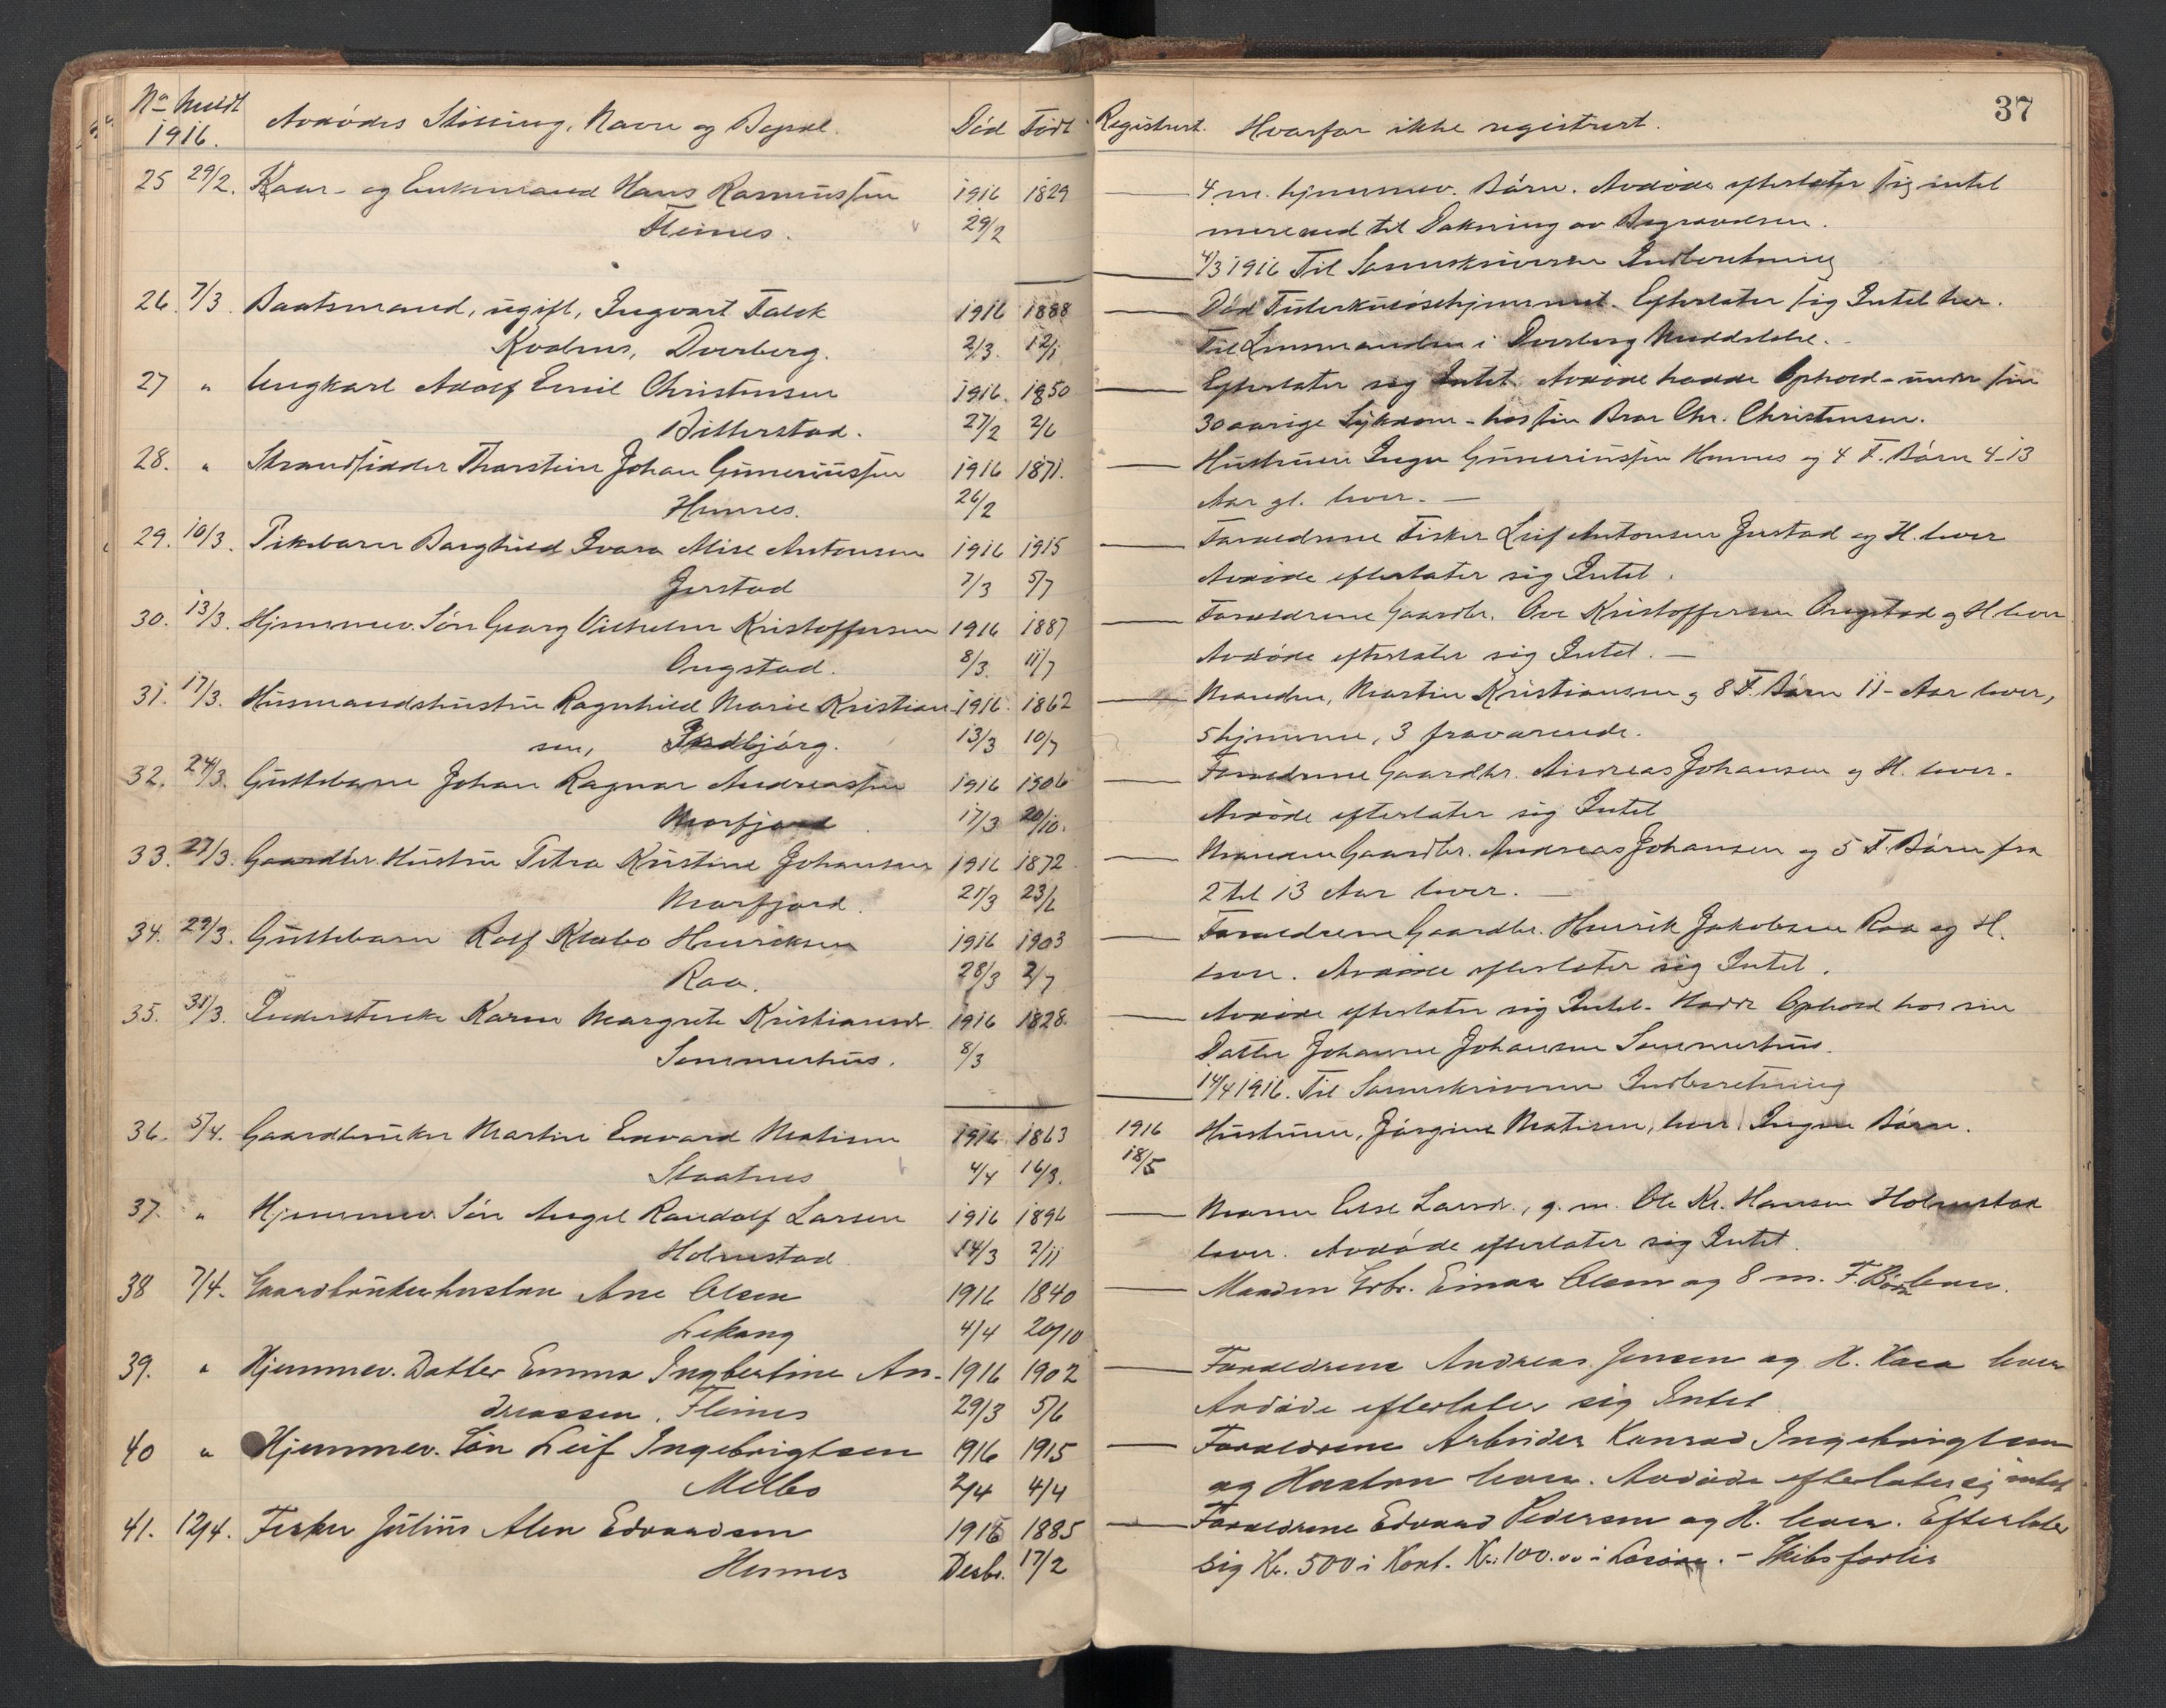 37
No Meldt Avdødes Stilling, Navn og Bopæl. Død Født Registrert. Hvorfor ikke registrert.
1916.
25 29/2. Kaar- og Enkemand Hans Rasmussen 1916 1829 4 m. hjemmev. Børn. Avdøde efterlater sig intet
Fleines. 29/2 mere end til Dækning av Begravelsen.
4/3 1916 Til Sorenskriveren Indberetning
26. 7/3. Baatsmand, ugift, Ingvart Falck 1916 1888 Død Tuberkulosehjemmet. Efterlater sig Intet her.
Kvalnes, Dverberg. 2/3. 12/1 Til Lensmanden i Dverberg Meddelelse.
27 " Ungkarl Adolf Emil Christensen 1916. 1850 Efterlater sig Intet. Avdøde hadde Ophold - under sin
Bitterstad. 27/2 2/6 30 aarige Sykdom - hos sin Bror Chr. Christensen.
28. " Strandsidder Thorstein Johan Guneriussen 1916 1871. Hustruen Inga Guneriussen Hennes og 4 F. Børn 4-13
Hennes. 26/2 Aar gl. lever. —
29. 10/3. Pikebarn Borghild Ivara Mise Antonsen 1916 1915 Forældrene Fisker Leif Antonsen Jerstad og H. lever
Jerstad 7/3 5/7 Avdøde efterlater sig Intet.
30. 13/3. Hjemmev. Søn Georg Vilhelm Kristoffersen 1916 1887 Forældrene Gaardbr. Ove Kristoffersen Ongstad og H lever
Ongstad. 8/3. 11/7 Avdøde efterlater sig Intet. —
31. 17/3. Husmandshustru Ragnhild Marie Kristian- 1916. 1862 Manden, Martin Kristiansen og 8 F. Børn 11- Aar lever,
sen, Indbjørg. 13/3 10/7 5 hjemme, 3 fraværende.
32. 24/3. Guttebarn Johan Ragnar Andreassen 1916 1906 Forældrene Gaardbr. Andreas Johansen og H. lever.
Morfjord 17/3 20/10. Avdøde efterlater sig Intet
33. 27/3. Gaardbr. Hustru Petra Kristine Johansen 1916 1872 Manden Gaardbr. Andreas Johansen og 5 F. Børn fra
Morfjord. 21/3 23/6 2 til 13 Aar lever. —
34. 29/3. Guttebarn Rolf Klæbo Henriksen 1916 1903 Forældrene Gaardbr. Henrik Jakobsen Raa og H.
Raa. 28/3 2/7 lever. Avdøde efterlater sig Intet.
35. 31/3. Inderstenke Karen Margrete Kristiansdr. 1916 1828. Avdøde efterlater sig Intet. Hadde Ophold hos sin
Sommerhus. 8/3 Datter Johanne Johansen Sommerhus.
14/4 1916. Til Sorenskriveren Indberetning
36. 5/4. Gaardbruker Martin Edvard Matisen 1916 1863 1916 Hustruen, Jørgine Matisen, lever. Ingen Børn.
Staatnes 4/4 16/3. 18/5
37. " Hjemmev. Søn Angel Randolf Larsen 1916 1896 Moren Else Larsdr., g. m. Ole Kr. Hansen Holmstad
Holmstad 14/3 2/11 lever. Avdøde efterlater sig Intet.
38 7/4. Gaardbrukerhustru Ane Olsen 1916 1840 Manden Grbr. Einar Olsen og 8 m. F. Børn lever.
Lekang 4/4 20/10
39. " Hjemmev. Datter Emma Ingbertine An- 1916 1902 Forældrene Andreas Jensen og H. lever
dreassen, Fleines 29/3 5/6 Avdøde efterlater sig Intet
40 " Hjemmev. Søn Leif Ingebrigtsen 1916 1915 Forældrene Arbeider Konrad Ingebrigtsen
Melbo 2/4 4/4 og Hustru lever. Avdøde efterlater sig intet
41. 12/4. Fisker Julius Alen Edvardsen 1915 1885 Forældrene Edvard Pedersen og H. lever. Efterlater
Hennes Desbr. 17/2 sig Kr. 500 i Kont. Kr. 100.00 i Løsøre. - Skibsforlis